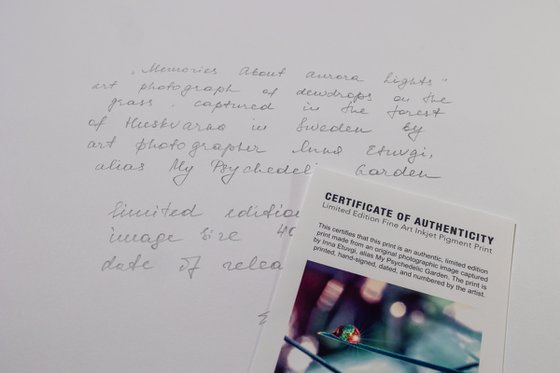 „Memories about aurora lights"
art photograph of dewdrops on the
grass, captured in the forest
of Huskvarna in Sweden by
art photographer Inna Etuvgi,
alias My Psychedelic Garden
limited edition
image size 40
date of relea
CERTIFICATE OF AUTHENTICITY
Limited Edition Fine Art Inkjet Pigment Print
This certifies that this print is an authentic, limited edition
print made from an original photographic image captured
by Inna Etuvgi, alias My Psychedelic Garden. The print is
printed, hand-signed, dated, and numbered by the artist.